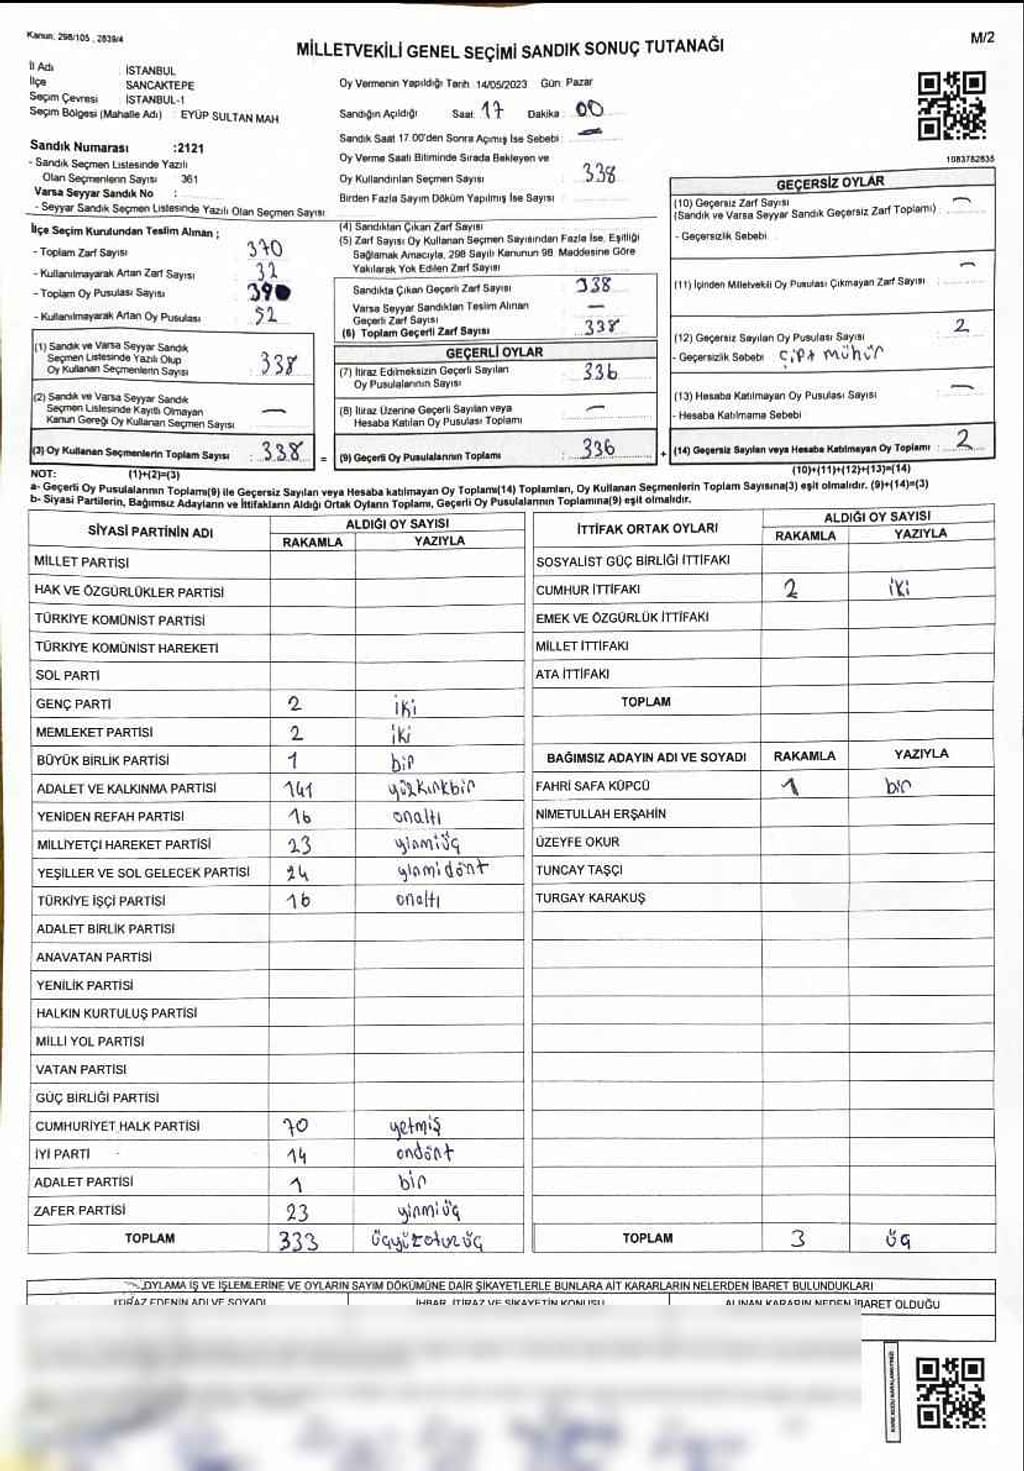 Kanun: 298/105 , 2839/4
MİLLETVEKİLİ GENEL SEÇİMİ SANDIK SONUÇ TUTANAĞI
M/2
İl Adı : İSTANBUL
İlçe SANCAKTEPE
Seçim Çevresi : İSTANBUL-1
Seçim Bölgesi (Mahalle Adı) : EYÜP SULTAN MAH
Sandık Numarası :2121
- Sandık Seçmen Listesinde Yazılı
Olan Seçmenlerin Sayısı 361
Varsa Seyyar Sandık No :
- Seyyar Sandık Seçmen Listesinde Yazılı Olan Seçmen Sayısı
Oy Vermenin Yapıldığı Tarih :14/05/2023 Gün: Pazar
Sandığın Açıldığı Saat: 17 Dakika : 00
Sandık Saat 17:00'den Sonra Açımış İse Sebebi : —
Oy Verme Saati Bitiminde Sırada Bekleyen ve
Oy Kullandırılan Seçmen Sayısı : 338
Birden Fazla Sayım Döküm Yapılmış İse Sayısı :
1083782835
İlçe Seçim Kurulundan Teslim Alınan ;
- Toplam Zarf Sayısı : 370
- Kullanılmayarak Artan Zarf Sayısı : 32
- Toplam Oy Pusulası Sayısı : 390
- Kullanılmayarak Artan Oy Pusulası : 52
(1) Sandık ve Varsa Seyyar Sandık
Seçmen Listesinde Yazılı Olup
Oy Kullanan Seçmenlerin Sayısı : 338
(2) Sandık ve Varsa Seyyar Sandık
Seçmen Listesinde Kayıtlı Olmayan
Kanun Gereği Oy Kullanan Seçmen Sayısı : —
(3) Oy Kullanan Seçmenlerin Toplam Sayısı : 338 =
(4) Sandıktan Çıkan Zarf Sayısı :
(5) Zarf Sayısı Oy Kullanan Seçmen Sayısından Fazla İse, Eşitliği
Sağlamak Amacıyla, 298 Sayılı Kanunun 98. Maddesine Göre
Yakılarak Yok Edilen Zarf Sayısı :
Sandıkta Çıkan Geçerli Zarf Sayısı : 338
Varsa Seyyar Sandıktan Teslim Alınan
Geçerli Zarf Sayısı : —
(6) Toplam Geçerli Zarf Sayısı : 338
GEÇERLİ OYLAR
(7) İtiraz Edilmeksizin Geçerli Sayılan
Oy Pusulalarının Sayısı : 336
(8) İtiraz Üzerine Geçerli Sayılan veya
Hesaba Katılan Oy Pusulası Toplamı : —
(9) Geçerli Oy Pusulalarının Toplamı : 336 +
GEÇERSİZ OYLAR
(10) Geçersiz Zarf Sayısı
(Sandık ve Varsa Seyyar Sandık Geçersiz Zarf Toplamı) : —
- Geçersizlik Sebebi :
(11) İçinden Milletvekili Oy Pusulası Çıkmayan Zarf Sayısı : —
(12) Geçersiz Sayılan Oy Pusulası Sayısı : 2
- Geçersizlik Sebebi : Çift mühür
(13) Hesaba Katılmayan Oy Pusulası Sayısı : —
- Hesaba Katılmama Sebebi
(14) Geçersiz Sayılan veya Hesaba Katılmayan Oy Toplamı : 2
NOT: (1)+(2)=(3) (10)+(11)+(12)+(13)=(14)
a- Geçerli Oy Pusulalarının Toplamı(9) ile Geçersiz Sayılan veya Hesaba katılmayan Oy Toplamı(14) Toplamları, Oy Kullanan Seçmenlerin Toplam Sayısına(3) eşit olmalıdır. (9)+(14)=(3)
b- Siyasi Partilerin, Bağımsız Adayların ve İttifakların Aldığı Ortak Oyların Toplamı, Geçerli Oy Pusulalarının Toplamına(9) eşit olmalıdır.
SİYASİ PARTİNİN ADI ALDIĞI OY SAYISI
RAKAMLA YAZIYLA
MİLLET PARTİSİ
HAK VE ÖZGÜRLÜKLER PARTİSİ
TÜRKİYE KOMÜNİST PARTİSİ
TÜRKİYE KOMÜNİST HAREKETİ
SOL PARTİ
GENÇ PARTİ 2 iki
MEMLEKET PARTİSİ 2 iki
BÜYÜK BİRLİK PARTİSİ 1 bir
ADALET VE KALKINMA PARTİSİ 141 yüzkırkbir
YENİDEN REFAH PARTİSİ 16 onaltı
MİLLİYETÇİ HAREKET PARTİSİ 23 yirmiüç
YEŞİLLER VE SOL GELECEK PARTİSİ 24 yirmidört
TÜRKİYE İŞÇİ PARTİSİ 16 onaltı
ADALET BİRLİK PARTİSİ
ANAVATAN PARTİSİ
YENİLİK PARTİSİ
HALKIN KURTULUŞ PARTİSİ
MİLLİ YOL PARTİSİ
VATAN PARTİSİ
GÜÇ BİRLİĞİ PARTİSİ
CUMHURİYET HALK PARTİSİ 70 yetmiş
İYİ PARTİ 14 ondört
ADALET PARTİSİ 1 bir
ZAFER PARTİSİ 23 yirmiüç
TOPLAM 333 üçyüzotuzüç
İTTİFAK ORTAK OYLARI ALDIĞI OY SAYISI
RAKAMLA YAZIYLA
SOSYALİST GÜÇ BİRLİĞİ İTTİFAKI
CUMHUR İTTİFAKI 2 iki
EMEK VE ÖZGÜRLÜK İTTİFAKI
MİLLET İTTİFAKI
ATA İTTİFAKI
TOPLAM
BAĞIMSIZ ADAYIN ADI VE SOYADI RAKAMLA YAZIYLA
FAHRİ SAFA KÜPCÜ 1 bir
NİMETULLAH ERŞAHİN
ÜZEYFE OKUR
TUNCAY TAŞÇI
TURGAY KARAKUŞ
TOPLAM 3 üç
OYLAMA İŞ VE İŞLEMLERİNE VE OYLARIN SAYIM DÖKÜMÜNE DAİR ŞİKAYETLERLE BUNLARA AİT KARARLARIN NELERDEN İBARET BULUNDUKLARI
İTİRAZ EDENİN ADI VE SOYADI İHBAR, İTİRAZ VE ŞİKAYETİN KONUSU ALINAN KARARIN NEDEN İBARET OLDUĞU